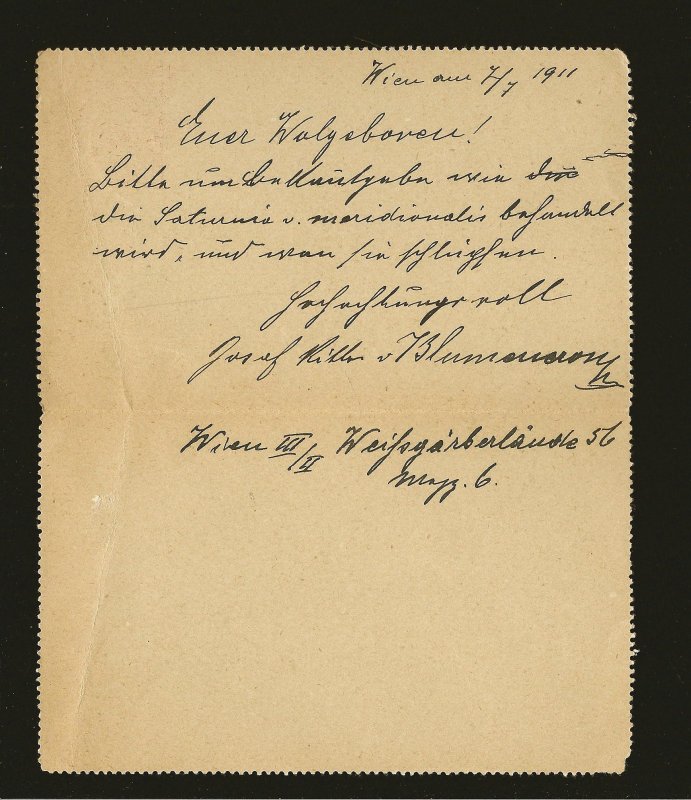 Wien am 7/7 1911
Euer Wolgeboren!
Bitte um Bekantgabe wie
die Saturnia v. meridionalis behandelt
wird, und wan sie schlüpfen.
Hochachtungsvoll
Josef Ritter v Blumencron
Wien III/II Weißgärberlände 56
6.